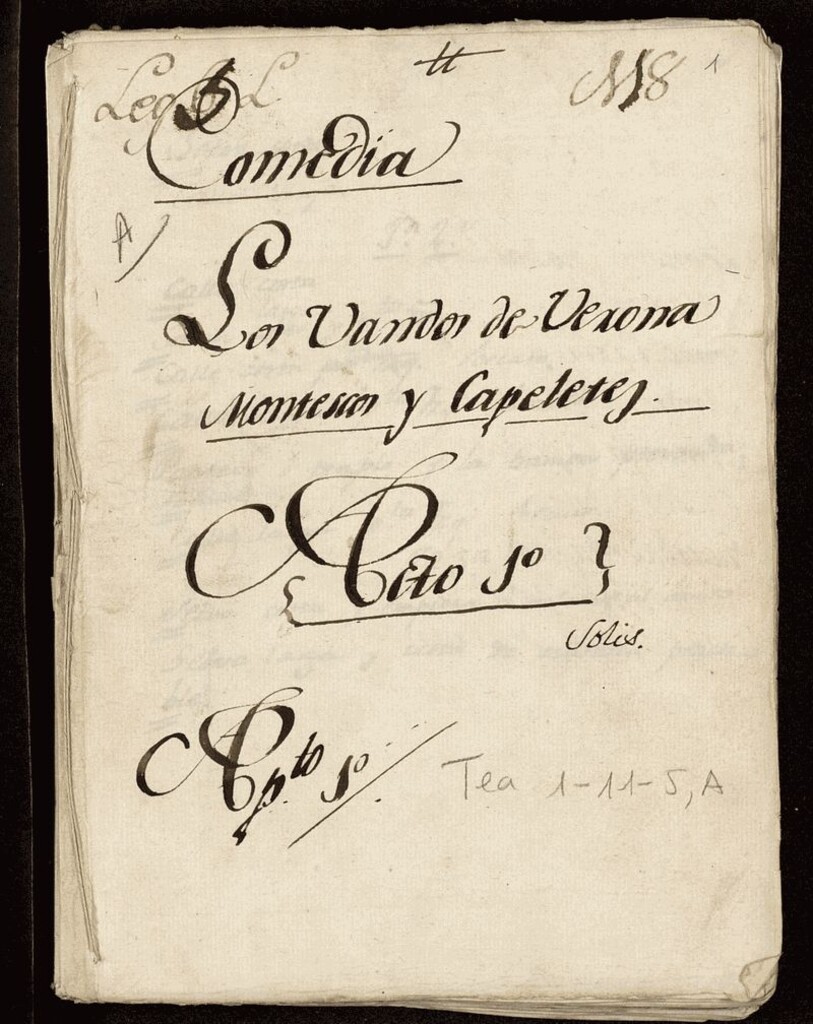 Leg L
tt
M8
1
Comedia
A/
Los Vandos de Verona
Montescos y Capeletes.
Acto 1º
Solis.
Apto 1º.
Tea 1-11-5, A